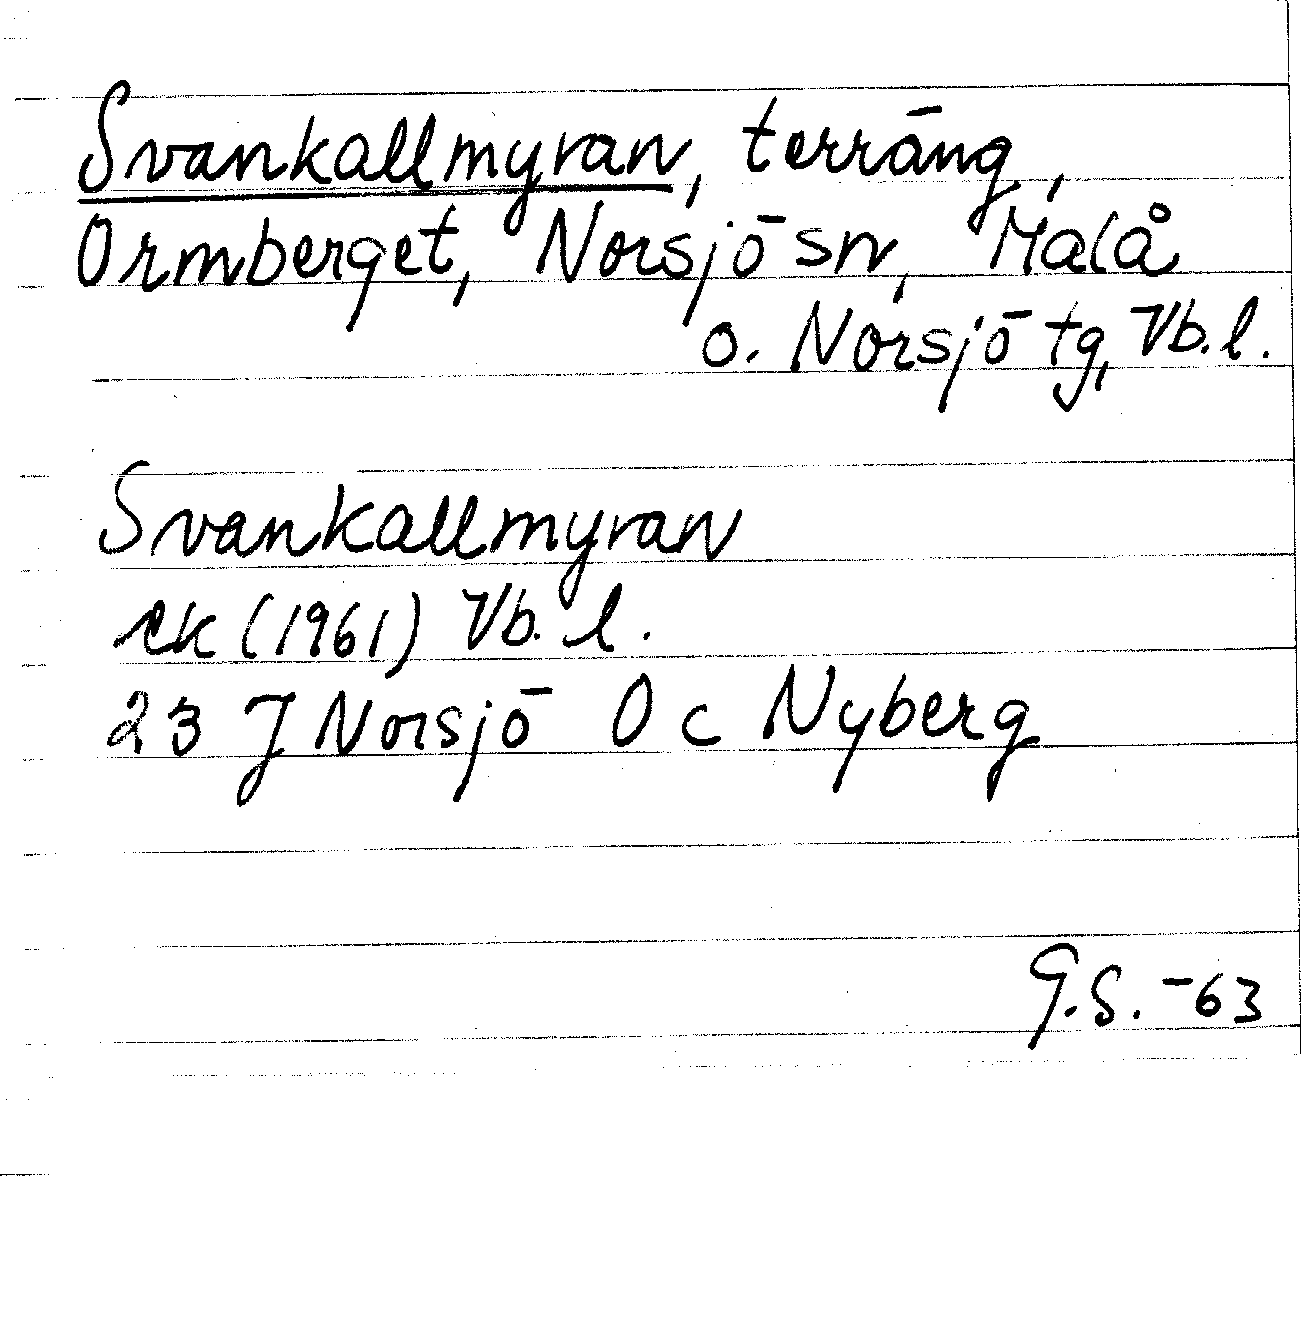 Svankallmyran, terräng,
Ormberget, Norsjö sn, Malå
o. Norsjö tg, Vb. l.
Svankallmyran
ek (1961) Vb. l.
23 J Norsjö 0 c Nyberg
G.S. -63